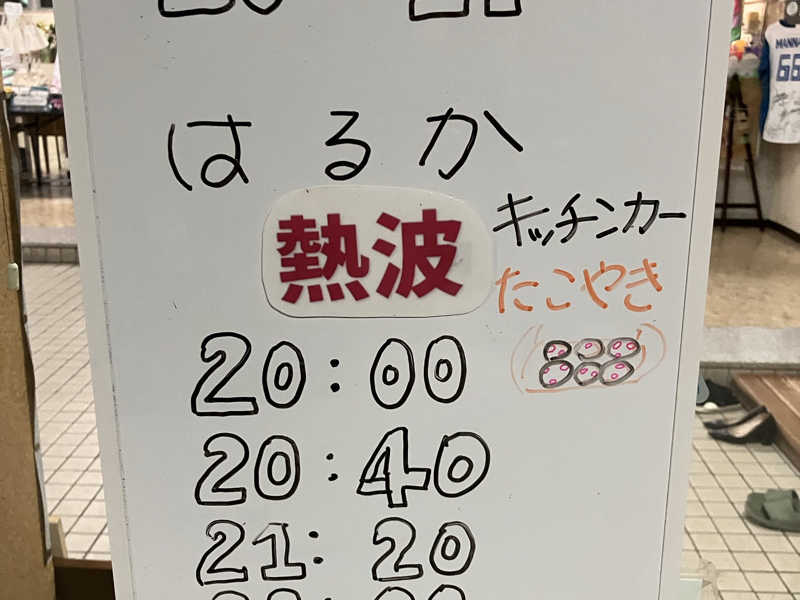 はるか
熱波
キッチンカー
たこやき
20:00
20:40
21:20
MANNA
66